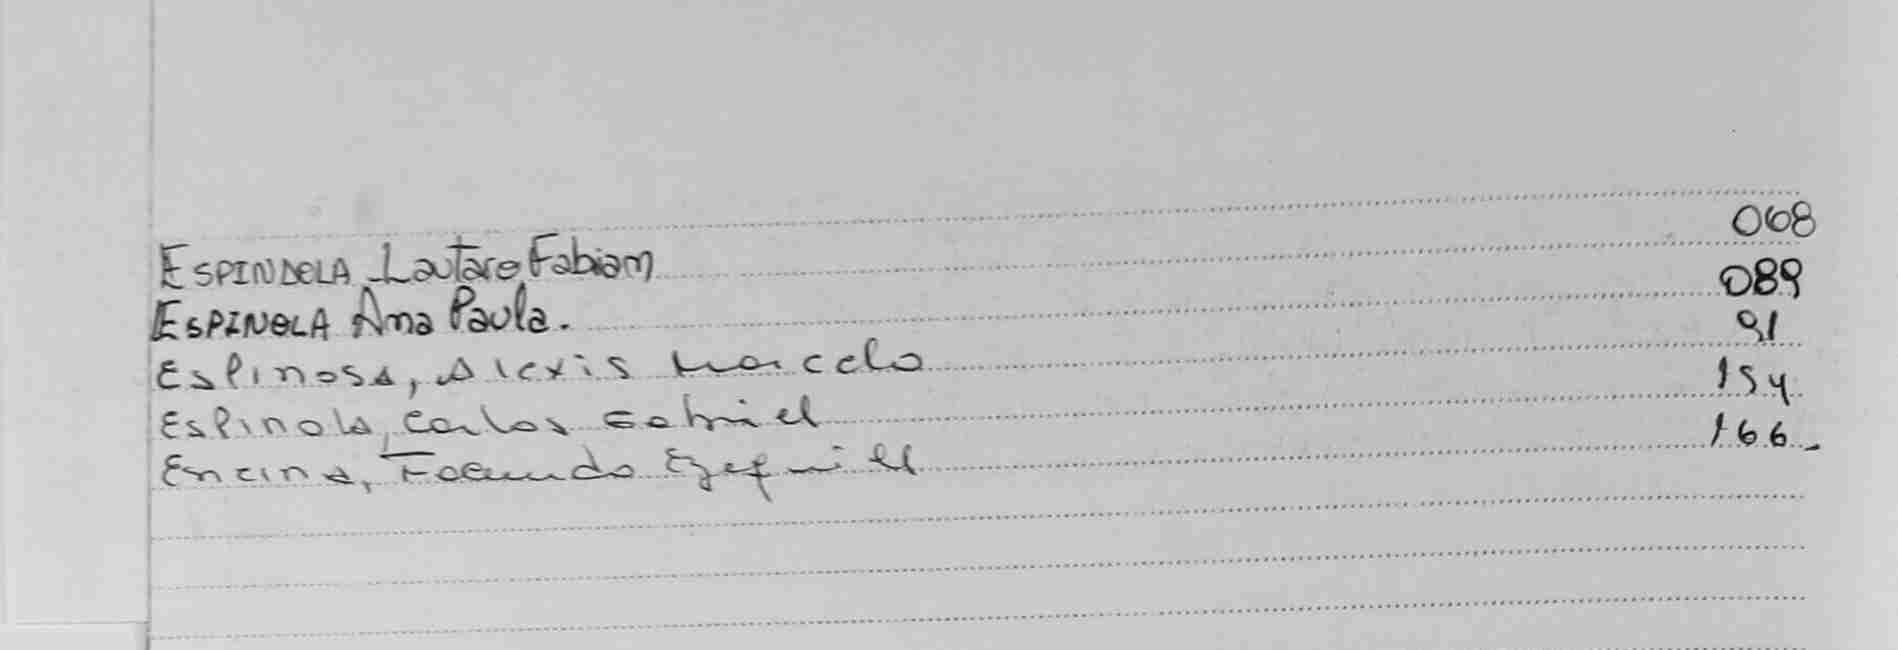 ESPINDOLA Lautaro Fabian 068
ESPINOLA Ana Paula. 089
Espinosa, Alexis Marcelo 91
Espinola, Carlos Gabriel 154
Encina, Facundo Ezequiel 166